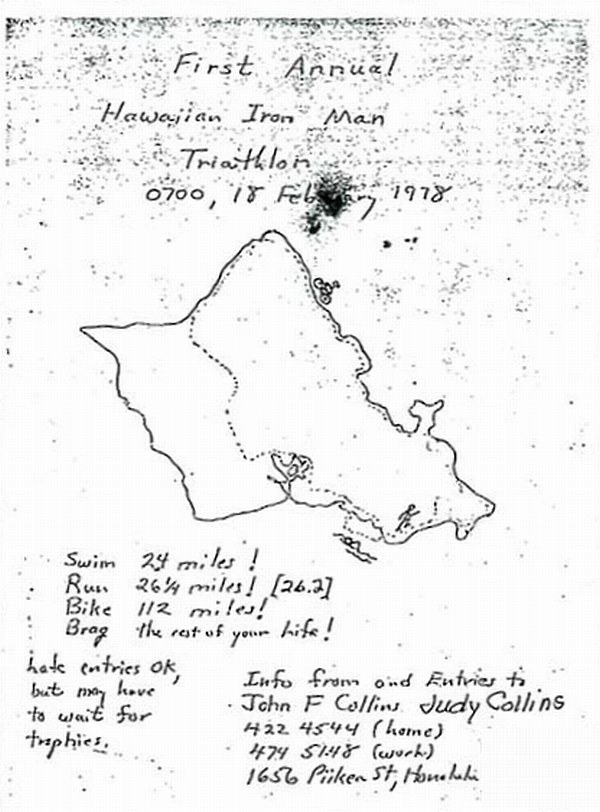 First Annual
Hawaiian Iron Man
Triathlon
0700, 18 February 1978
Swim 2.4 miles!
Run 26¼ miles! [26.2]
Bike 112 miles!
Brag the rest of your life!
Late entries OK,
but may have
to wait for
trophies.
Info from and Entries to
John F Collins Judy Collins
422 4544 (home)
474 5148 (work)
1656 St, Honolulu